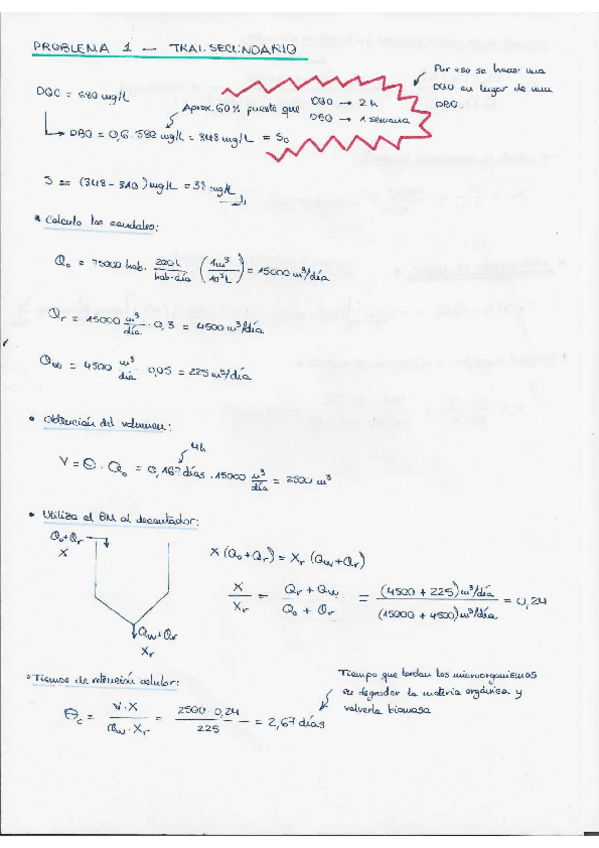 PROBLEMA 1 — TRAT. SECUNDARIO
Por eso se hace una
DQO en lugar de una
DBO.
DQO = 580 mg/L
Aprox. 60% puesto que DQO → 2 h
DBO → 1 semana
DBO = 0,6 · 580 mg/L = 348 mg/L = S₀
S = (348 - 310) mg/L = 38 mg/L
* Calculo los caudales:
Q₀ = 75000 hab. · 200 L / hab·día · (1 m³ / 10³ L) = 15000 m³/día
Qr = 15000 m³/día · 0,3 = 4500 m³/día
Qw = 4500 m³/día · 0,05 = 225 m³/día
• Obtención del volumen:
4h
V = Θ · Q₀ = 0,167 días · 15000 m³/día = 2500 m³
• Utiliza el BM al decantador:
Q₀+Qr
X
X (Q₀+Qr) = Xr (Qw+Qr)
X / Xr = Qr + Qw / Q₀ + Qr = (4500 + 225) m³/día / (15000 + 4500) m³/día = 0,24
Qw+Qr
Xr
• Tiempo de retención celular:
Tiempo que tardan los microorganismos
en degradar la materia orgánica y
volverla biomasa
Θc = V·X / Qw·Xr = 2500·0,24 / 225 = 2,67 días